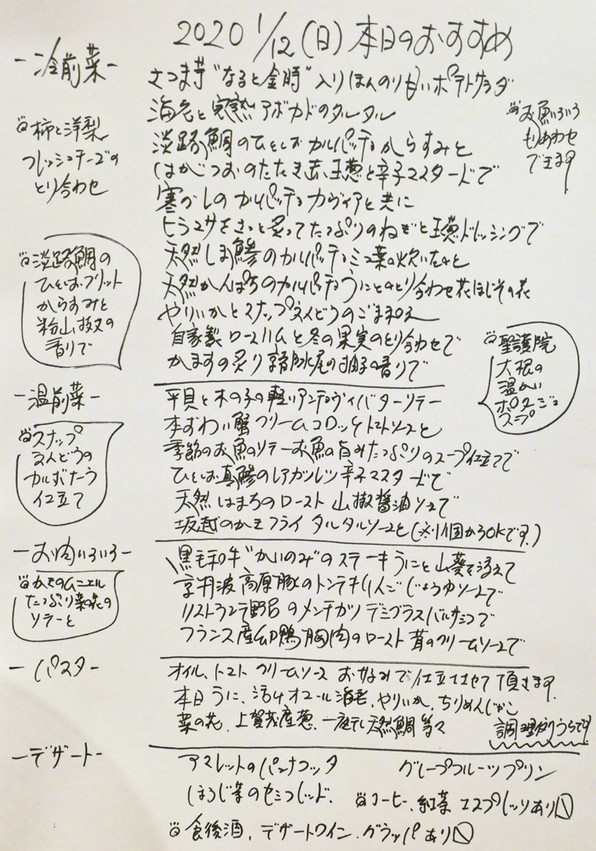 2020 1/12(日)本日のおすすめ
-冷前菜-
さつま芋"なると金時"入りほんのり甘いポテトサラダ
海老と完熟アボカドのタルタル
淡路鯛のひとしおカルパッチョからすみと
はがつおのたたき 玉葱と辛子マスタードで
寒ぶりのカルパッチョ カヴィアと共に
ヒラマサをさっと炙ってたっぷりのねぎと玉葱ドレッシングで
天然しま鯵のカルパッチョ
天然かんぱちのカルパッチョ うにとのとり合わせ 花ほじその花
やりいかとスナップえんどうのごまあえ
自家製ロースハムと冬の果実のとり合わせで
かますの炙り の柚子の香りで
柿と洋梨
フレッシュチーズの
とり合わせ
お魚いろいろ
もりあわせ
できます
淡路鯛の
ひとしおフリット
からすみと
粉山椒の
香りで
聖護院
大根の
温かい
ポタージュ
スープ
-温前菜-
平貝と木の子の軽いアンチョヴィバターソテー
本ずわい蟹クリームコロッケ トマトソースと
季節のお魚のソテー お魚の旨みたっぷりのスープ仕立てで
ひとしお真鯵のレアカツレツ 辛子マスタードで
天然はまちのロースト 山椒醤油ソースで
坂越のかきフライ タルタルソースと(※1個からOKです。)
スナップ
えんどうの
カルボナーラ
仕立て
-お肉いろいろ-
黒毛和牛"かいのみ"のステーキ うにと山葵を添えて
京丹波高原豚のトンテキ りんごじょうゆソースで
リストランテ野呂のメンチカツ デミグラスバルサミコで
フランス産 鴨胸肉のロースト 茸のクリームソースで
ムニエル
たっぷり菜の花の
ソテーと
-パスタ-
オイル、トマト クリームソース お好みで仕立てさせて頂きます。
本日 うに、活オマール海老、やりいか、ちりめんじゃこ
菜の花、上賀茂産葱、天然鯛 等々
-デザート-
アマレットのパンナコッタ グレープフルーツプリン
ほうじ茶のセミフレッド. コーヒー、紅茶 エスプレッソあり
食後酒、デザートワイン、グラッパあり